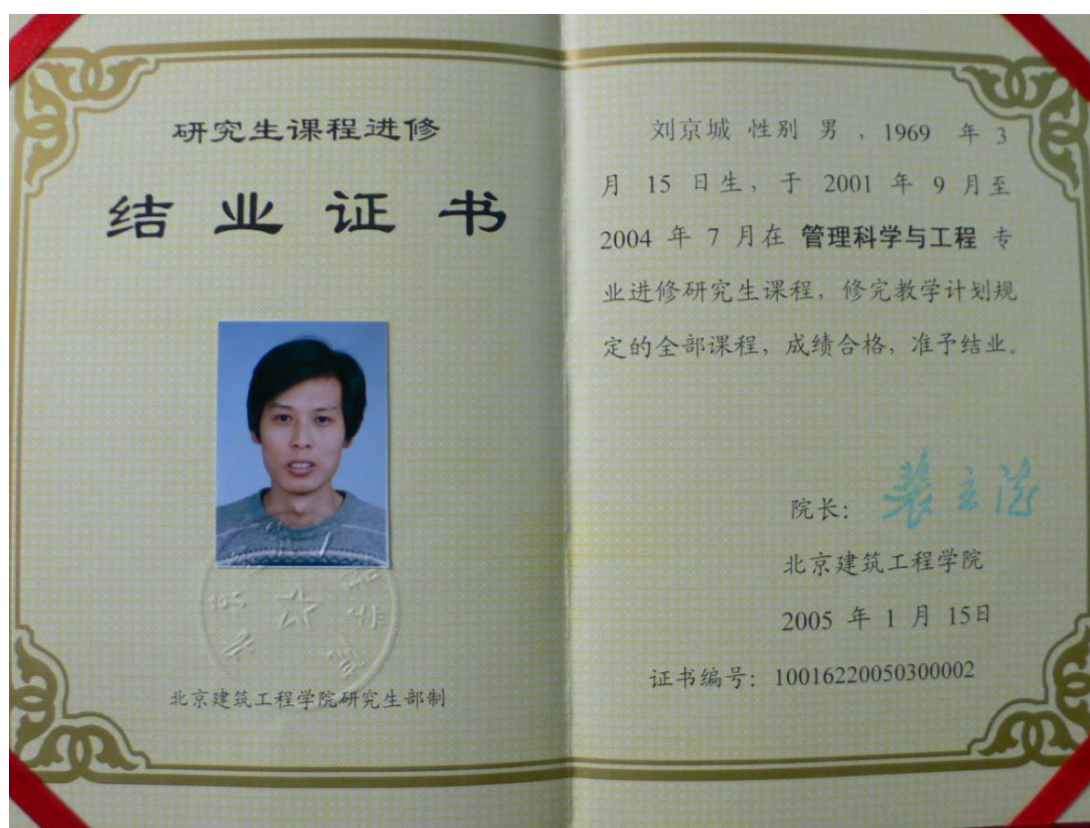 研究生课程进修
结业证书
北京建筑工程学院研究生部制
刘京城 性别 男 ，1969 年 3
月 15 日生，于 2001 年 9 月至
2004 年 7 月在 管理科学与工程 专
业进修研究生课程，修完教学计划规
定的全部课程，成绩合格，准予结业。
院长：
北京建筑工程学院
2005 年 1 月 15日
证书编号：10016220050300002